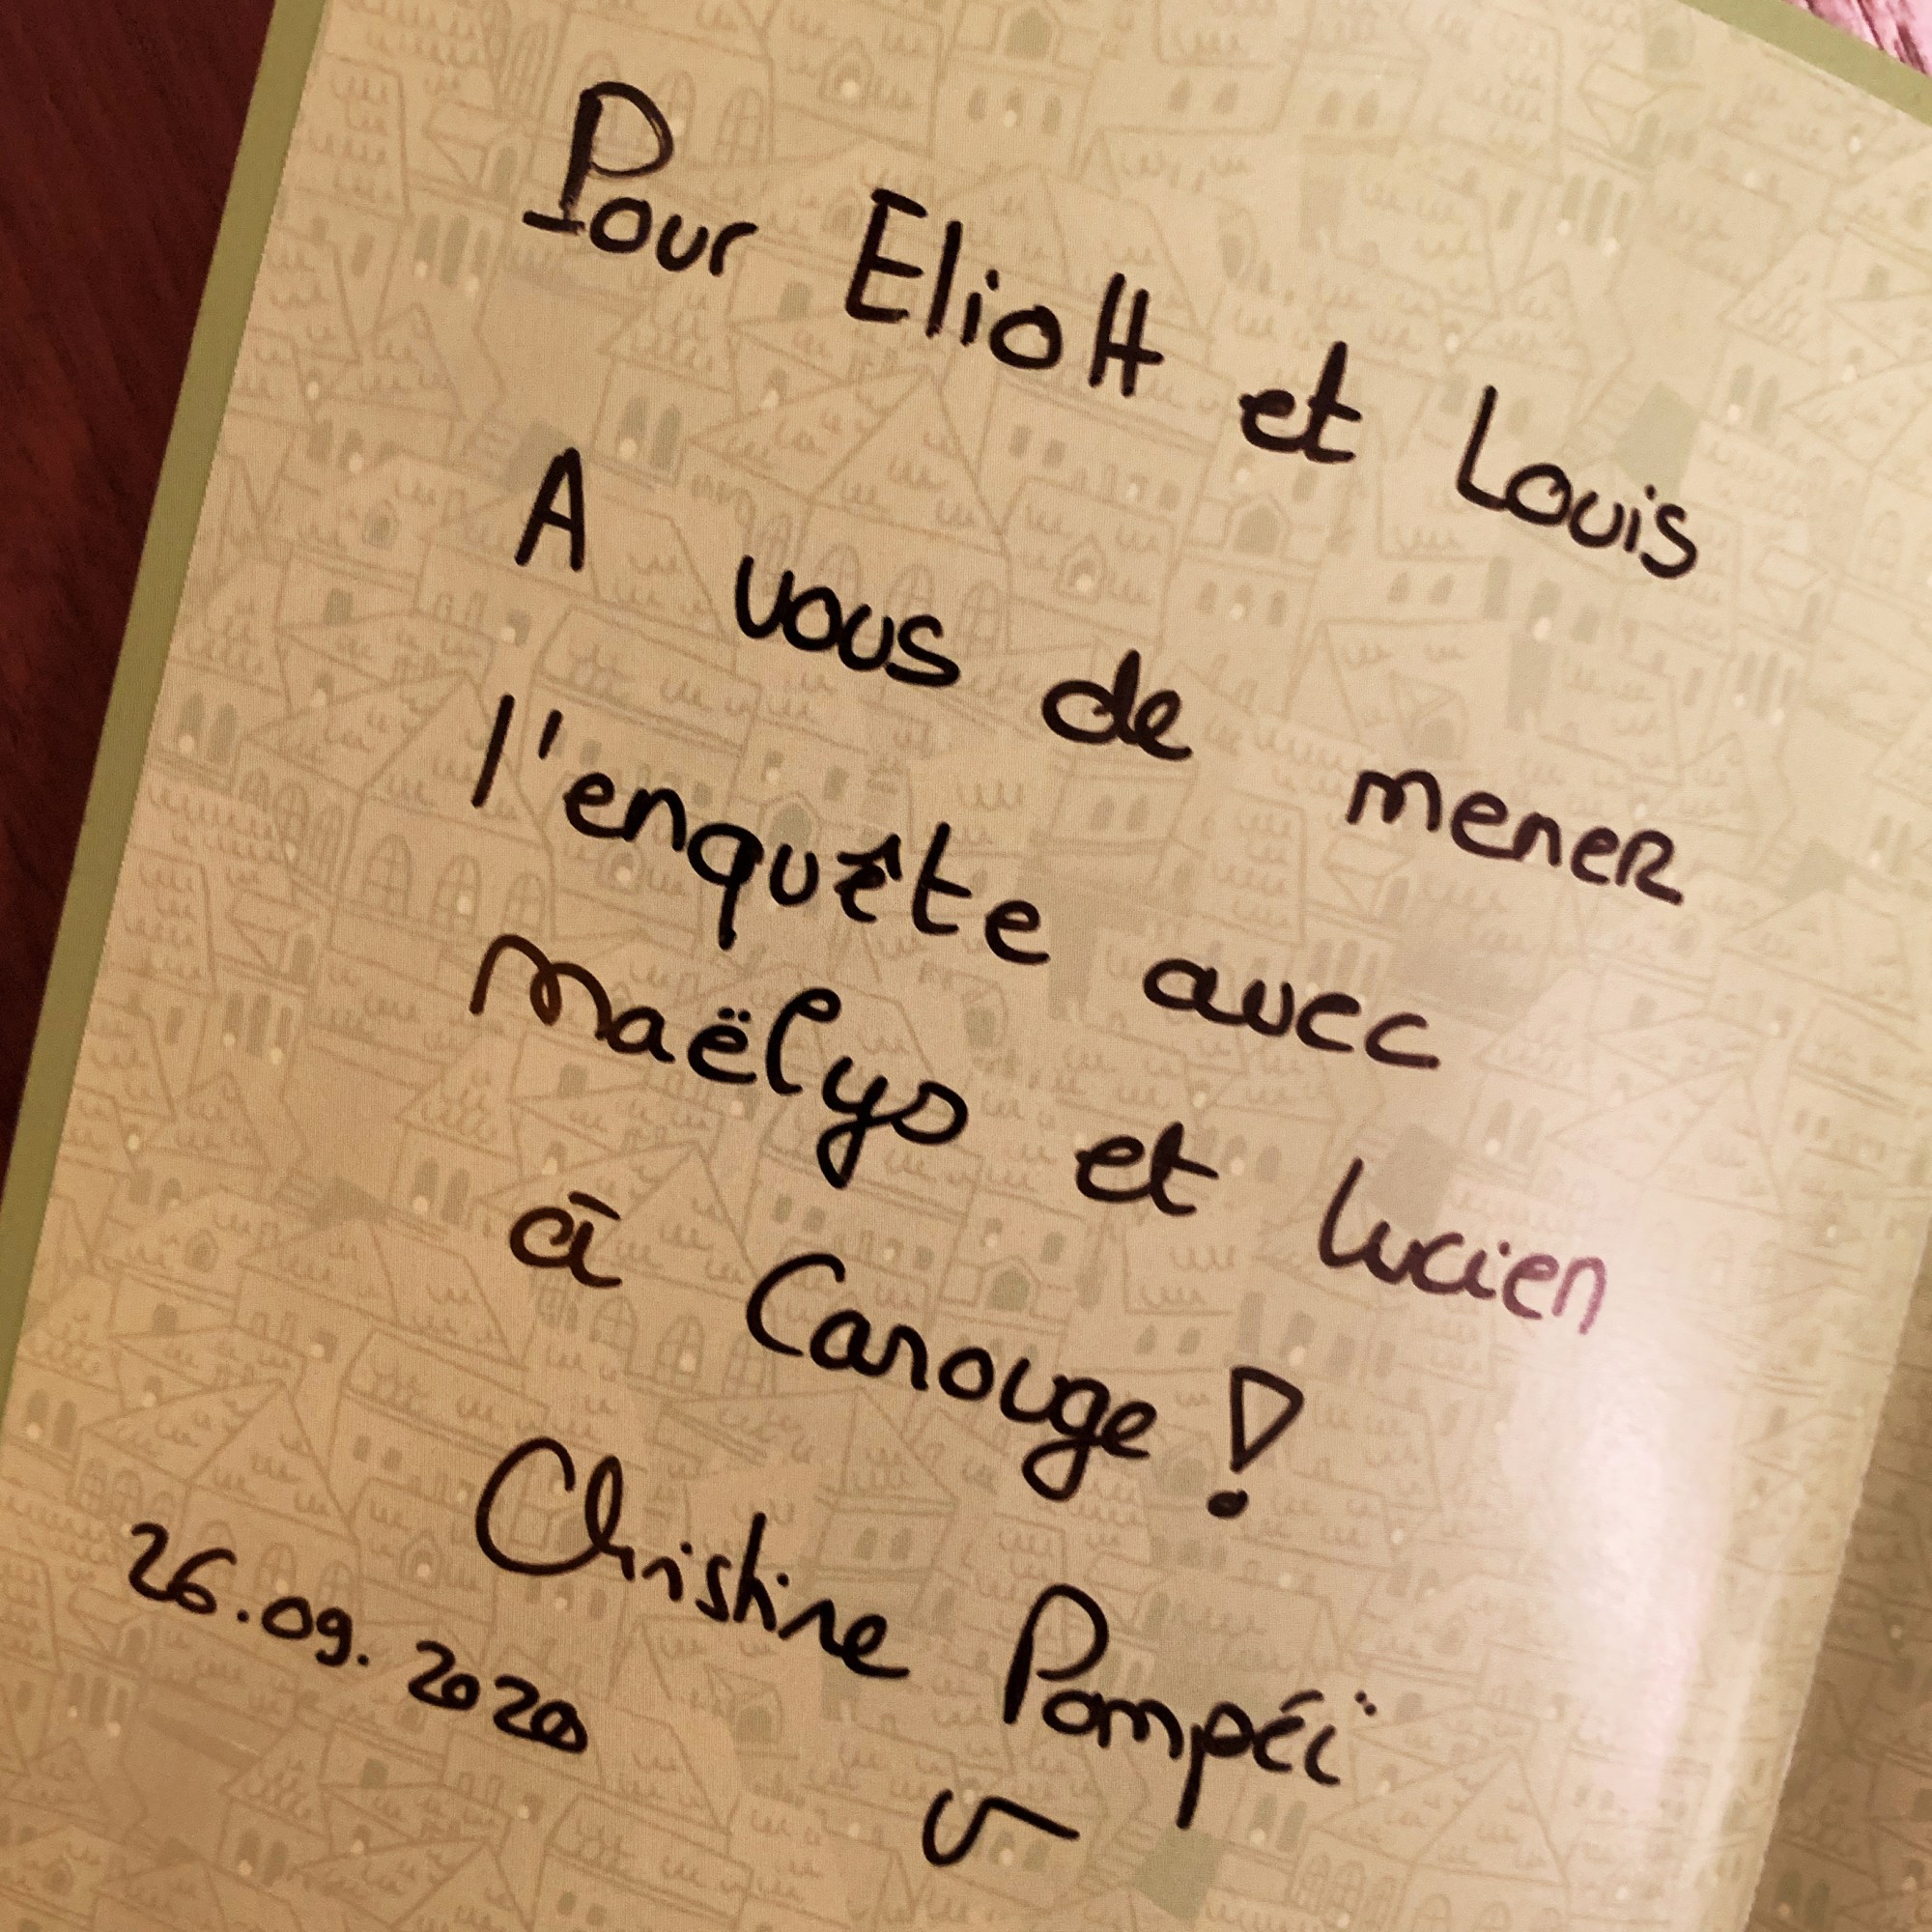 Pour Eliott et Louis
A vous de mener
l'enquête avec
Maëlys et Lucien
à Carouge !
Christine Pompéï
26.09.2020